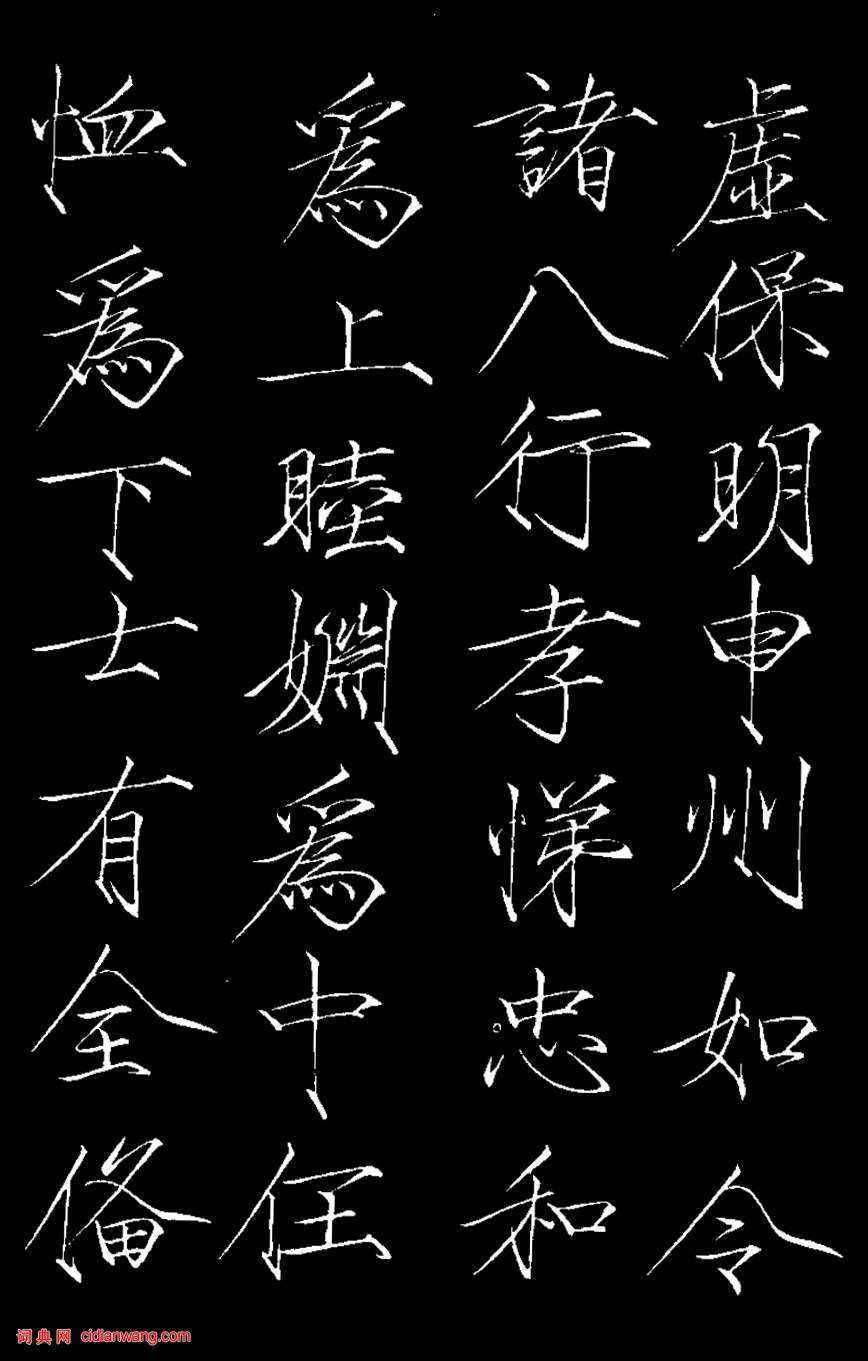 虛保明申州如令
諸八行孝悌忠和
為上睦婣為中任
恤為下士有全俻
词典网 cidianwang.com